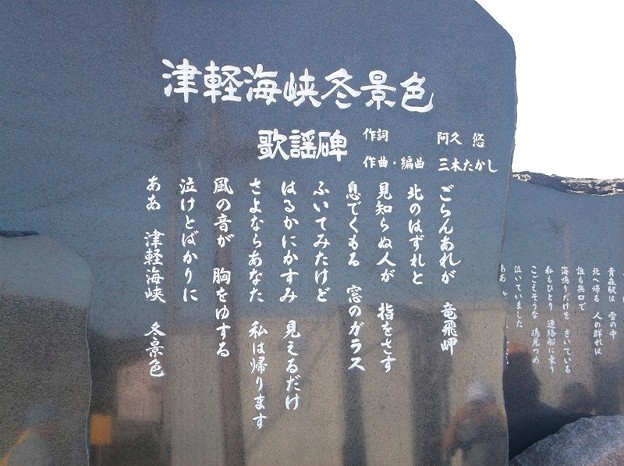 津軽海峡冬景色
歌謡碑
作詞　阿久　悠
作曲・編曲　三木たかし
ごらんあれが　竜飛岬
北のはずれと
見知らぬ人が　指をさす
息でくもる　窓のガラス
ふいてみたけど
はるかにかすみ　見えるだけ
さよならあなた　私は帰ります
風の音が　胸をゆする
泣けとばかりに
ああ　津軽海峡　冬景色
青森駅は　雪の中
北へ帰る　人の群れは
誰も無口で
海鳴りだけを　きいている
私もひとり　連絡船に乗り
こごえそうな　鴎見つめ
泣いていました
ああ